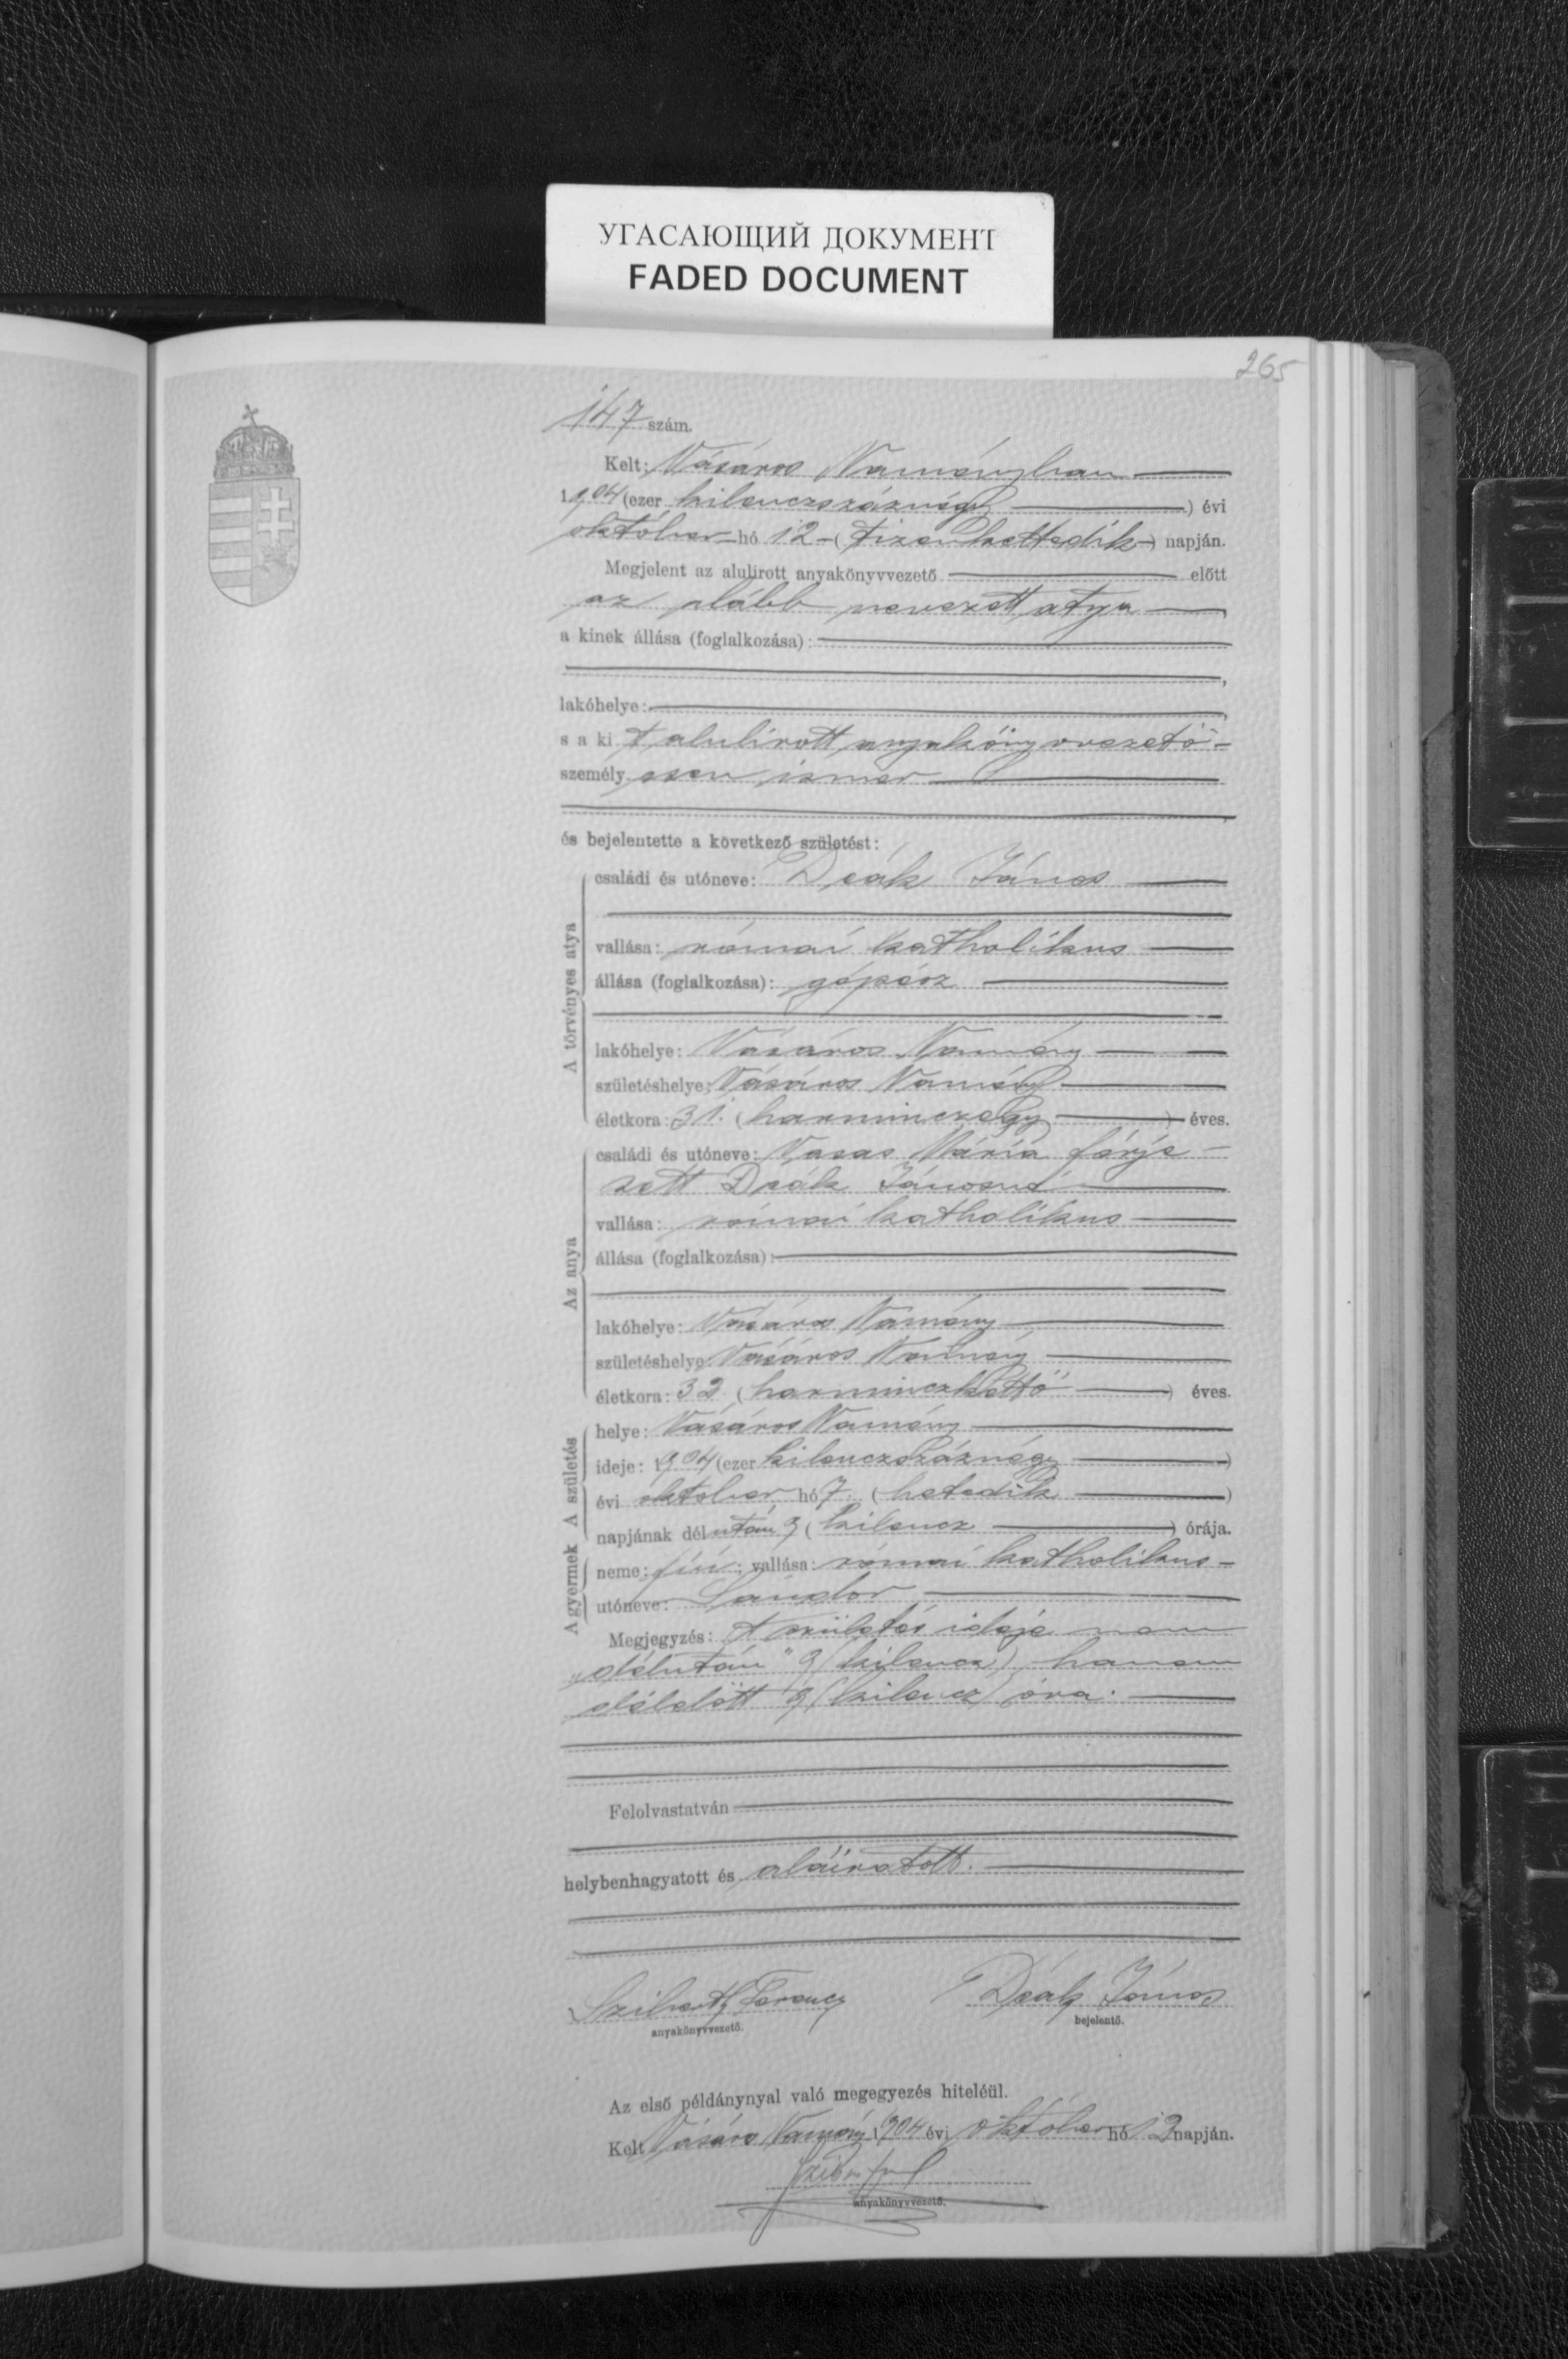 УГАСАЮЩИЙ ДОКУМЕНТ
FADED DOCUMENT
265
147 szám.
Kelt: Vásáros Naményban
1904 (ezer kilenczszáznégy ) évi
október hó 12 (tizenkettedik) napján.
Megjelent az alulirott anyakönyvvezető előtt
az alább nevezett atya ,
a kinek állása (foglalkozása):
,
lakóhelye: ,
s a ki t alulirott anyakönyvvezető
személyesen ismer
,
és bejelentette a következő születést:
A törvényes atya
családi és utóneve: Deák János
vallása: római katholikus
állása (foglalkozása): gépész
lakóhelye: Vásáros Namény
születéshelye: Vásáros Namény
életkora: 31. (harminczegy ) éves.
Az anya
családi és utóneve: Vasas Mária férje-
zett Deák Jánosné
vallása: római katholikus
állása (foglalkozása):
lakóhelye: Vásáros Namény
születéshelye: Vásáros Namény
életkora: 32 (harminczkettő ) éves.
A születés
helye: Vásáros Namény
ideje: 1904 (ezer kilenczszáznégy )
évi október hó 7. (hetedik )
napjának délután 9 (kilencz ) órája.
A gyermek
neme: fiú; vallása: római katholikus
utóneve: Sándor
Megjegyzés: A születés ideje nem
"délután" 9 (kilencz), hanem
délelőtt 9 (kilencz) óra.
Felolvastatván
helybenhagyatott és aláiratott.
Ferencz Deák János
anyakönyvvezető. bejelentő.
Az első példánynyal való megegyezés hiteléül.
Kelt Vásáros Namény 1904 évi október hó 12 napján.
anyakönyvvezető.